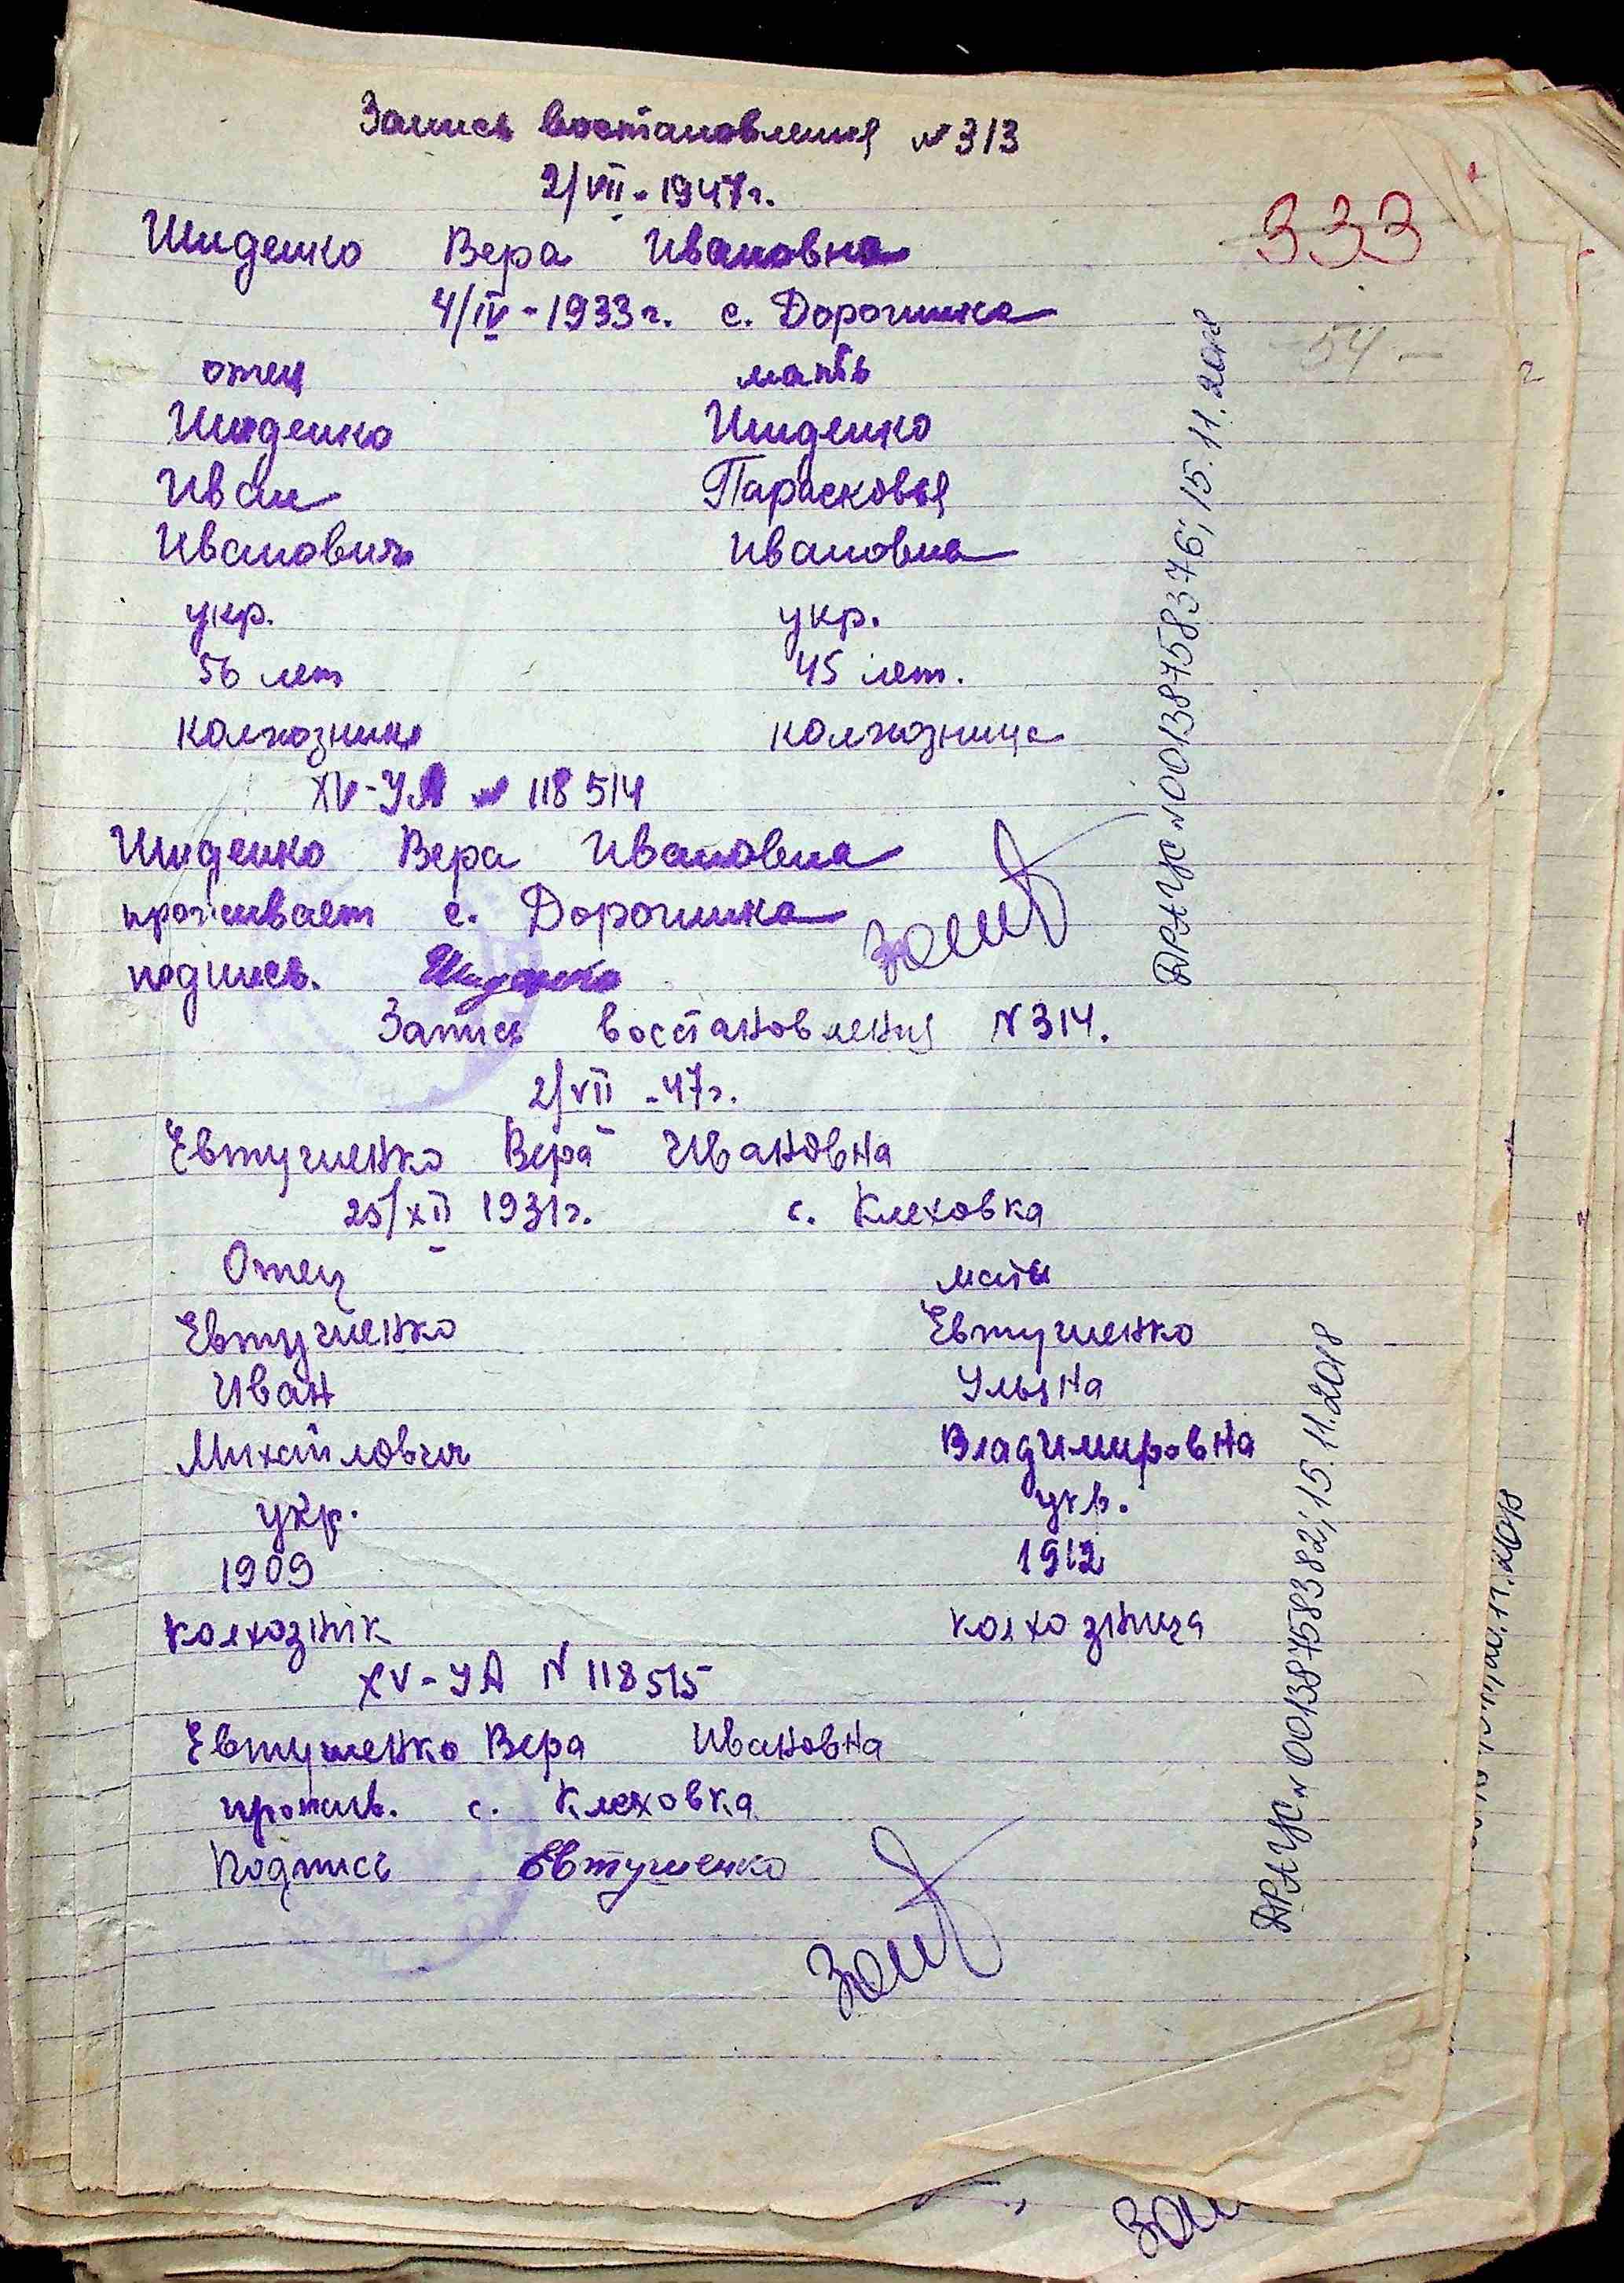 Запись востановления № 313
2/VII - 1947 г.
333
Шиденко Вера Ивановна
4/IV - 1933 г. с. Дорогинка
54 -
отец мать
Шиденко Шиденко
Иван Парасковья
Иванович Ивановна
укр. укр.
56 лет 45 лет.
колхозник колхозница
XV-УА № 118514
Шиденко Вера Ивановна
проживает с. Дорогинка
подпись. Шиденко
ДРАЦС № 00138758376; 15.11.2018
Запись восстановления № 314.
2/VII - 47 г.
Евтушенко Вера Ивановна
25/XII 1931 г. с. Клеховка
Отец мать
Евтушенко Евтушенко
Иван Ульяна
Михайлович Владимировна
укр. укр.
1909 1912
колхознік колхозница
XV-УА № 118515
Евтушенко Вера Ивановна
прожив. с. Клеховка
Подпись Евтушенко
ДРАЦС № 00138758382; 15.11.2018